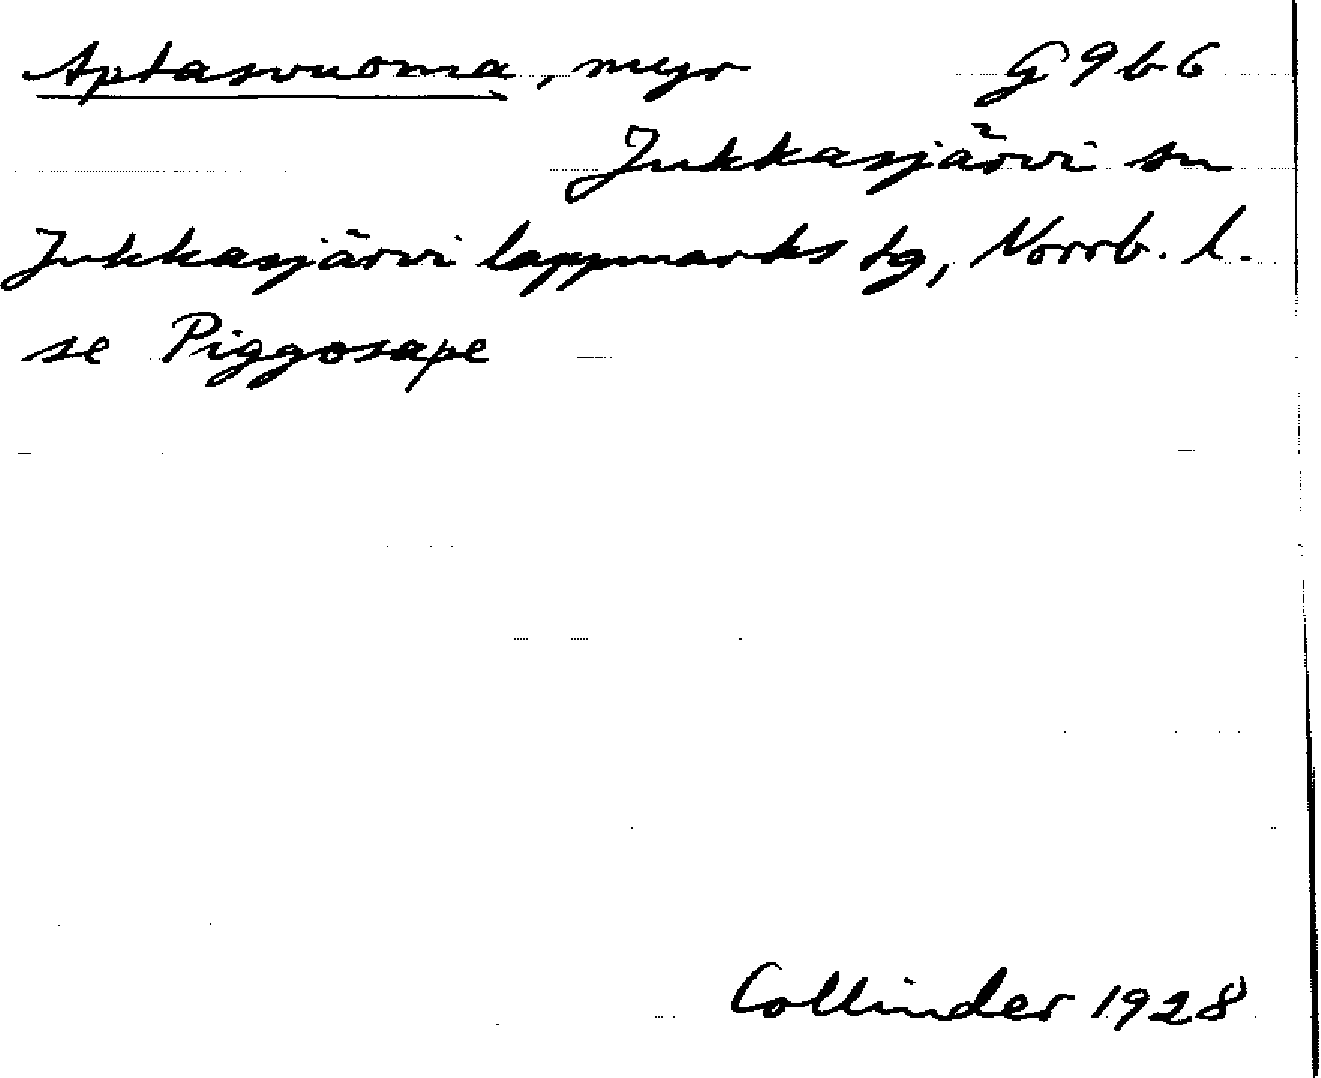 Aptasvuoma, myr G9b6
Jukkasjärvi sn
Jukkasjärvi lappmarks tg, Norrb. l.
se Piggosape
Collinder 1928